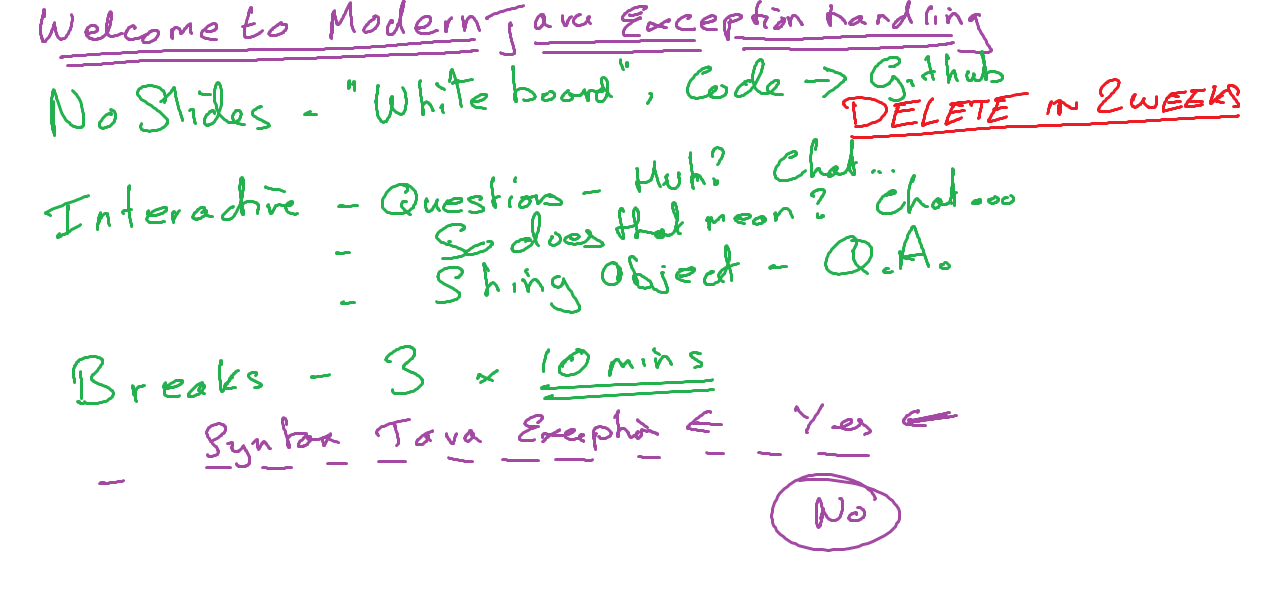 Welcome to Modern Java Exception handling
No Slides - "White board", Code → Github
DELETE IN 2 WEEKS
Interactive - Questions - Huh? Chat...
- So does that mean? Chat...
- Shiny Object - Q.A.
Breaks - 3 × 10 mins
- Syntax Java Exception ← Yes ←
No